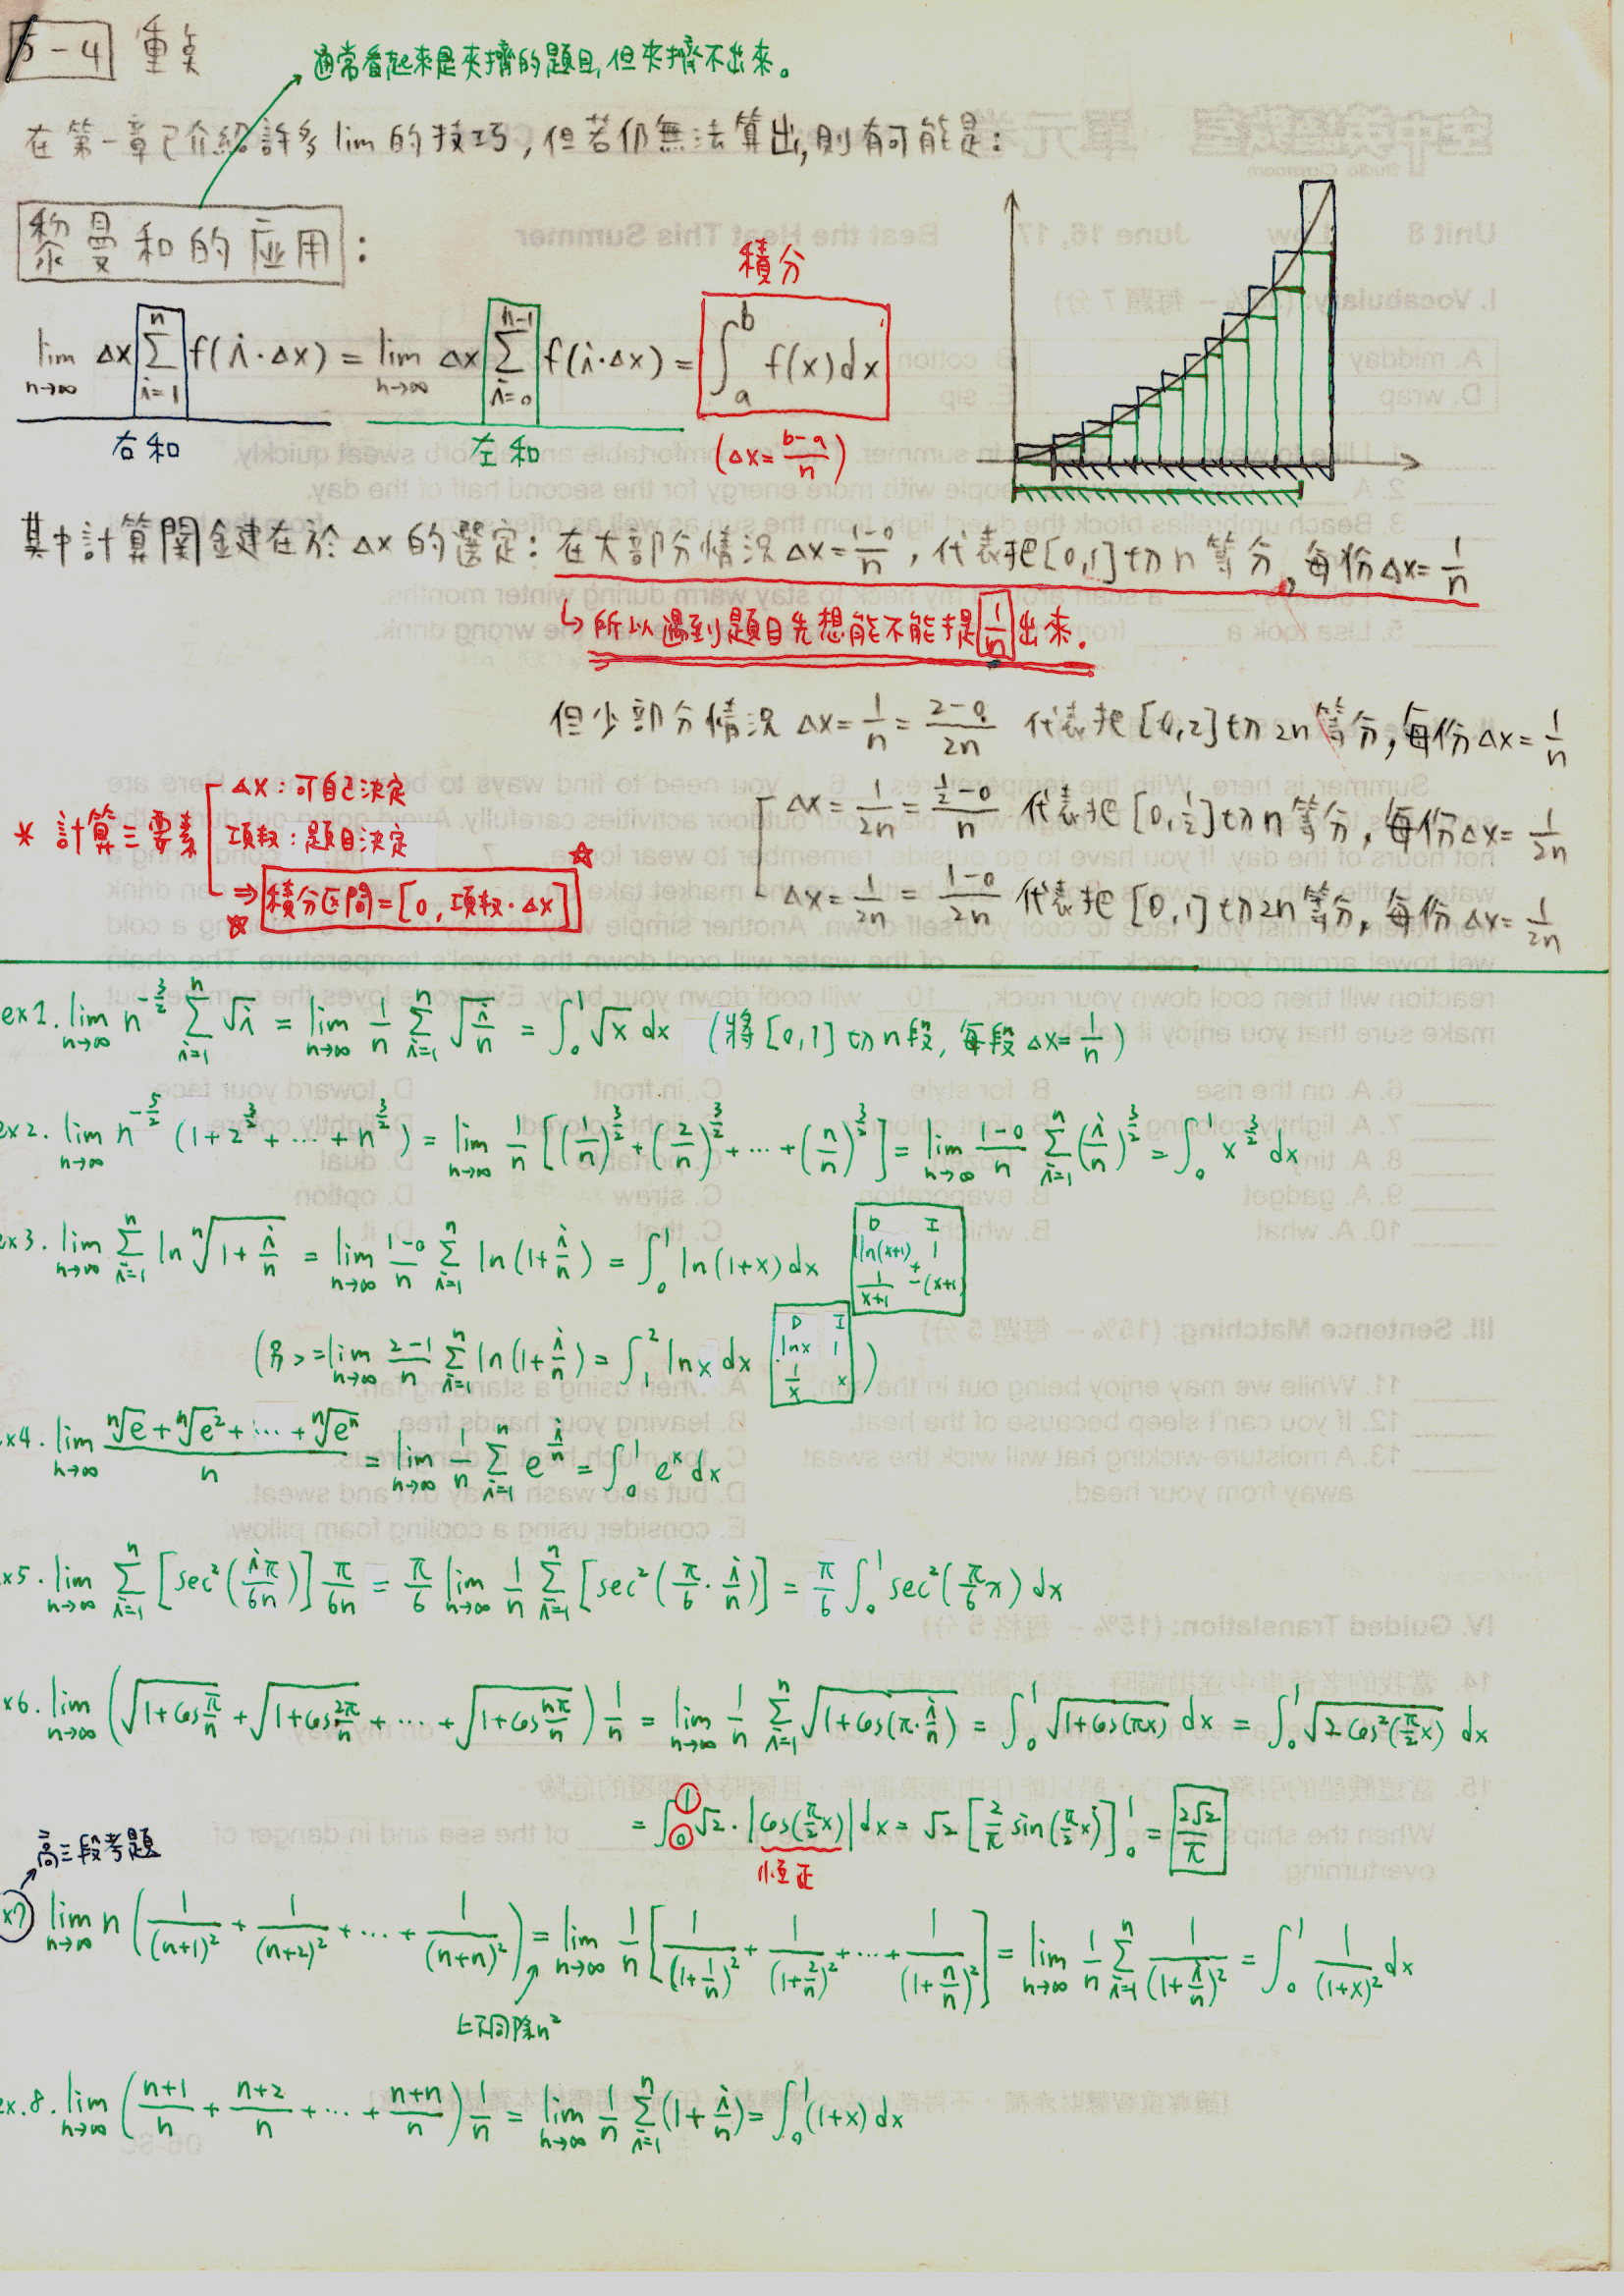 5-4 重點
通常看起來是夾擠的題目,但夾擠不出來。
在第一章已介紹許多 lim 的技巧,但若仍無法算出,則有可能是:
黎曼和的應用:
積分
lim_{n→∞} Δx Σ_{i=1}^{n} f(i·Δx) = lim_{n→∞} Δx Σ_{i=0}^{n-1} f(i·Δx) = ∫_a^b f(x)dx
右和 左和 (Δx = (b-a)/n)
其中計算關鍵在於 Δx 的選定: 在大部分情況 Δx = (1-0)/n, 代表把[0,1]切 n 等分, 每份 Δx = 1/n
↳ 所以遇到題目先想能不能提 1/n 出來.
但少部分情況 Δx = 1/n = (2-0)/2n 代表把 [0,2] 切 2n 等分, 每份 Δx = 1/n
Δx = 1/2n = (1/2-0)/n 代表把 [0,1/2] 切 n 等分, 每份 Δx = 1/2n
Δx = 1/2n = (1-0)/2n 代表把 [0,1] 切 2n 等分, 每份 Δx = 1/2n
* 計算三要素
Δx: 可自己決定
項數: 題目決定
⇒ 積分區間 = [0, 項數·Δx]
ex1. lim_{n→∞} n^{-3/2} Σ_{i=1}^{n} √i = lim_{n→∞} 1/n Σ_{i=1}^{n} √(i/n) = ∫_0^1 √x dx (將[0,1]切n段, 每段 Δx = 1/n)
ex2. lim_{n→∞} n^{-5/2} (1+2^{3/2}+⋯+n^{3/2}) = lim_{n→∞} 1/n [(1/n)^{3/2}+(2/n)^{3/2}+⋯+(n/n)^{3/2}] = lim_{n→∞} (1-0)/n Σ_{i=1}^{n} (i/n)^{3/2} = ∫_0^1 x^{3/2} dx
ex3. lim_{n→∞} Σ_{i=1}^{n} ln ⁿ√(1+i/n) = lim_{n→∞} (1-0)/n Σ_{i=1}^{n} ln(1+i/n) = ∫_0^1 ln(1+x)dx
D I
ln(x+1) + 1
1/(x+1) -(x+1)
(另> = lim_{n→∞} (2-1)/n Σ_{i=1}^{n} ln(1+i/n) = ∫_1^2 ln x dx
D I
lnx 1
1/x x )
x4. lim_{n→∞} (ⁿ√e + ⁿ√e² + ⋯ + ⁿ√eⁿ)/n = lim_{n→∞} 1/n Σ_{i=1}^{n} e^{i/n} = ∫_0^1 e^x dx
x5. lim_{n→∞} Σ_{i=1}^{n} [sec²(iπ/6n)] π/6n = π/6 lim_{n→∞} 1/n Σ_{i=1}^{n} [sec²(π/6 · i/n)] = π/6 ∫_0^1 sec²(π/6 x) dx
x6. lim_{n→∞} (√(1+cos π/n) + √(1+cos 2π/n) + ⋯ + √(1+cos nπ/n)) 1/n = lim_{n→∞} 1/n Σ_{i=1}^{n} √(1+cos(π·i/n)) = ∫_0^1 √(1+cos(πx)) dx = ∫_0^1 √(2cos²(π/2 x)) dx
= ∫_0^1 √2 · |cos(π/2 x)| dx = √2 [2/π sin(π/2 x)]_0^1 = 2√2/π
恆正
高三段考題
x7 lim_{n→∞} n (1/(n+1)² + 1/(n+2)² + ⋯ + 1/(n+n)²) = lim_{n→∞} 1/n [1/(1+1/n)² + 1/(1+2/n)² + ⋯ + 1/(1+n/n)²] = lim_{n→∞} 1/n Σ_{i=1}^{n} 1/(1+i/n)² = ∫_0^1 1/(1+x)² dx
上下同除n²
ex.8. lim_{n→∞} ((n+1)/n + (n+2)/n + ⋯ + (n+n)/n) 1/n = lim_{n→∞} 1/n Σ_{i=1}^{n} (1+i/n) = ∫_0^1 (1+x) dx